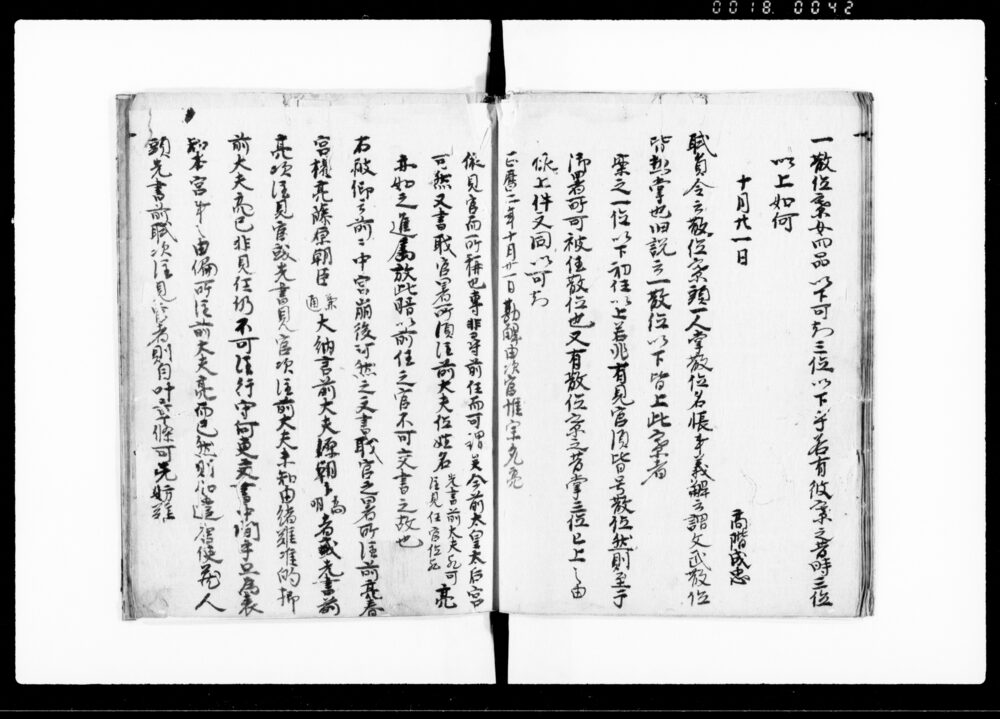 0018 0042
一散位寮女四品以下可書三位以下乎若有彼寮之昔時三位
以上如何
十月廿一日
高階成忠
職員令云散位寮頭一人掌散位名帳事義解云謂文武散位
皆惣掌也旧説云一散位以下皆上此寮者
寮之一位以下初位以上若非有見官須皆号散位然則至于
御署所可被任散位也又有散位寮之昔掌三位已上之由
依上件文同以可書
正暦二年十月廿一日勘解由次官惟宗允亮
依見官而所称也専非尋前任而可謂矣今前太皇太后宮
可然又書職官署所須注前大夫位姓名 先書前大夫乃可注見任官位 亮
亦如之進属放此暗以前任之官不可交書之故也
右被仰云前二中宮崩後可然之文書職官之署所注前亮春
宮権亮藤原朝臣 大納言前大夫源朝臣 者或先書前
亮次注見官或先書見官次注前大夫未知由緒難准的抑
前大夫亮已非見任仍不可注行守何更交書中間乎只為表
知本宮 由偏所注前大夫亮而已然則 遣唐使 人
頭先書前職次注見官者則自叶 条可先